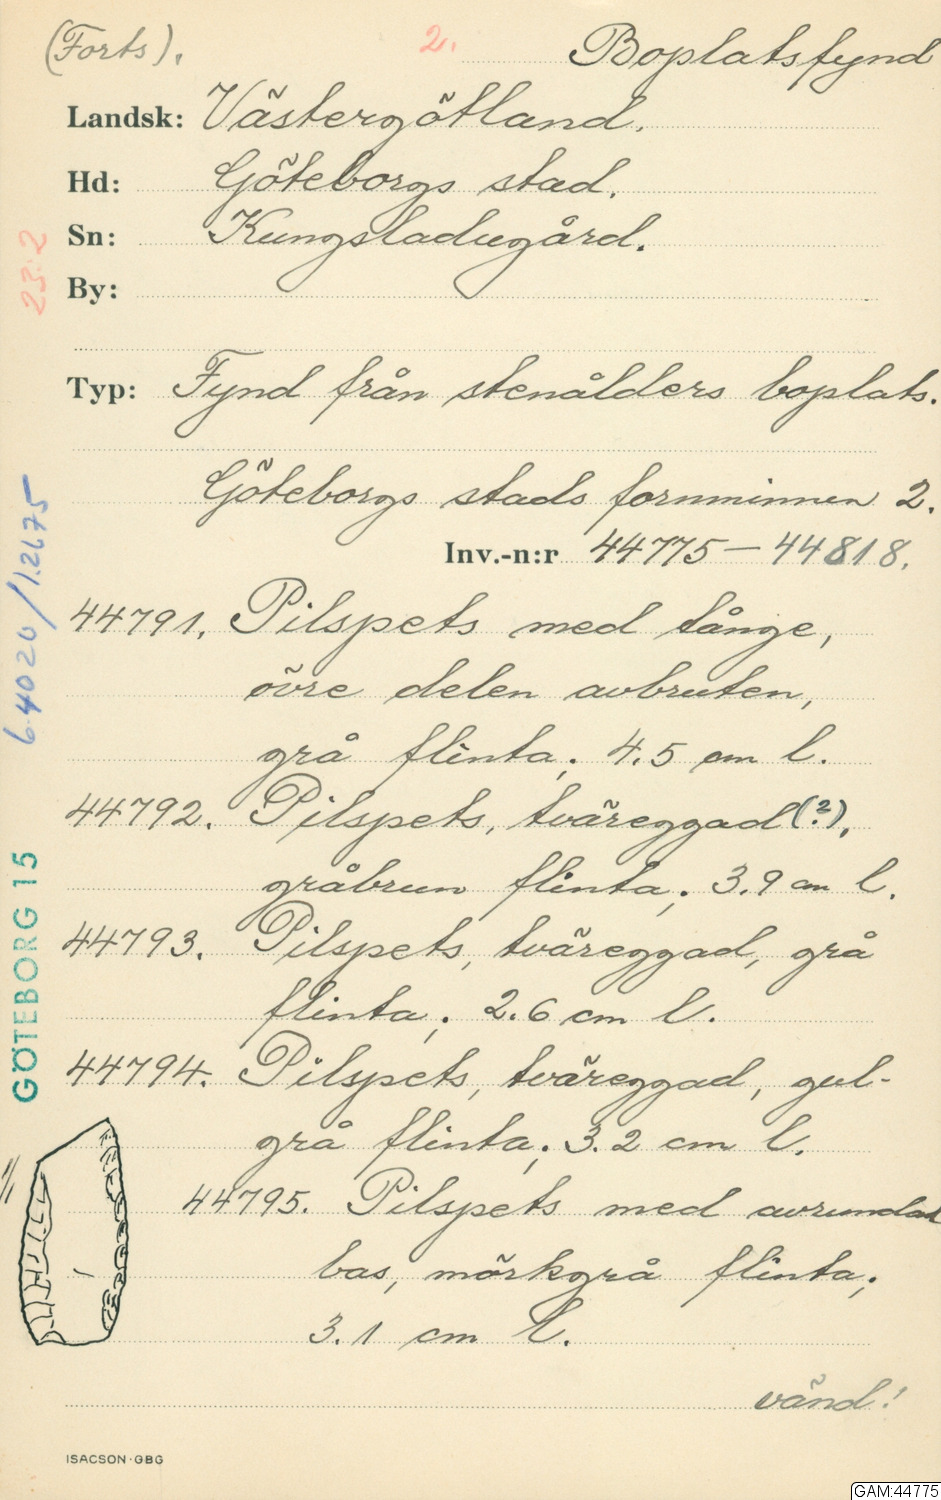 (Forts).
2.
Boplatsfynd
Landsk: Västergötland.
Hd: Göteborgs stad.
Sn: Kungsladugård.
By:
Typ: Fynd från stenålders boplats.
Göteborgs stads fornminnen 2.
Inv.-n:r 44775 — 44818.
44791. Pilspets med tånge,
övre delen avbruten,
grå flinta; 4.5 cm l.
44792. Pilspets, tväreggad (?),
gråbrun flinta; 3.9 cm l.
44793. Pilspets, tväreggad, grå
flinta; 2.6 cm l.
44794. Pilspets, tväreggad, gul-
grå flinta; 3.2 cm l.
44795. Pilspets med avrundad
bas, mörkgrå flinta;
3.1 cm l.
vänd!
23:2
6.4020/1.2675
GÖTEBORG 15
1/1
ISACSON·GBG
GAM:44775